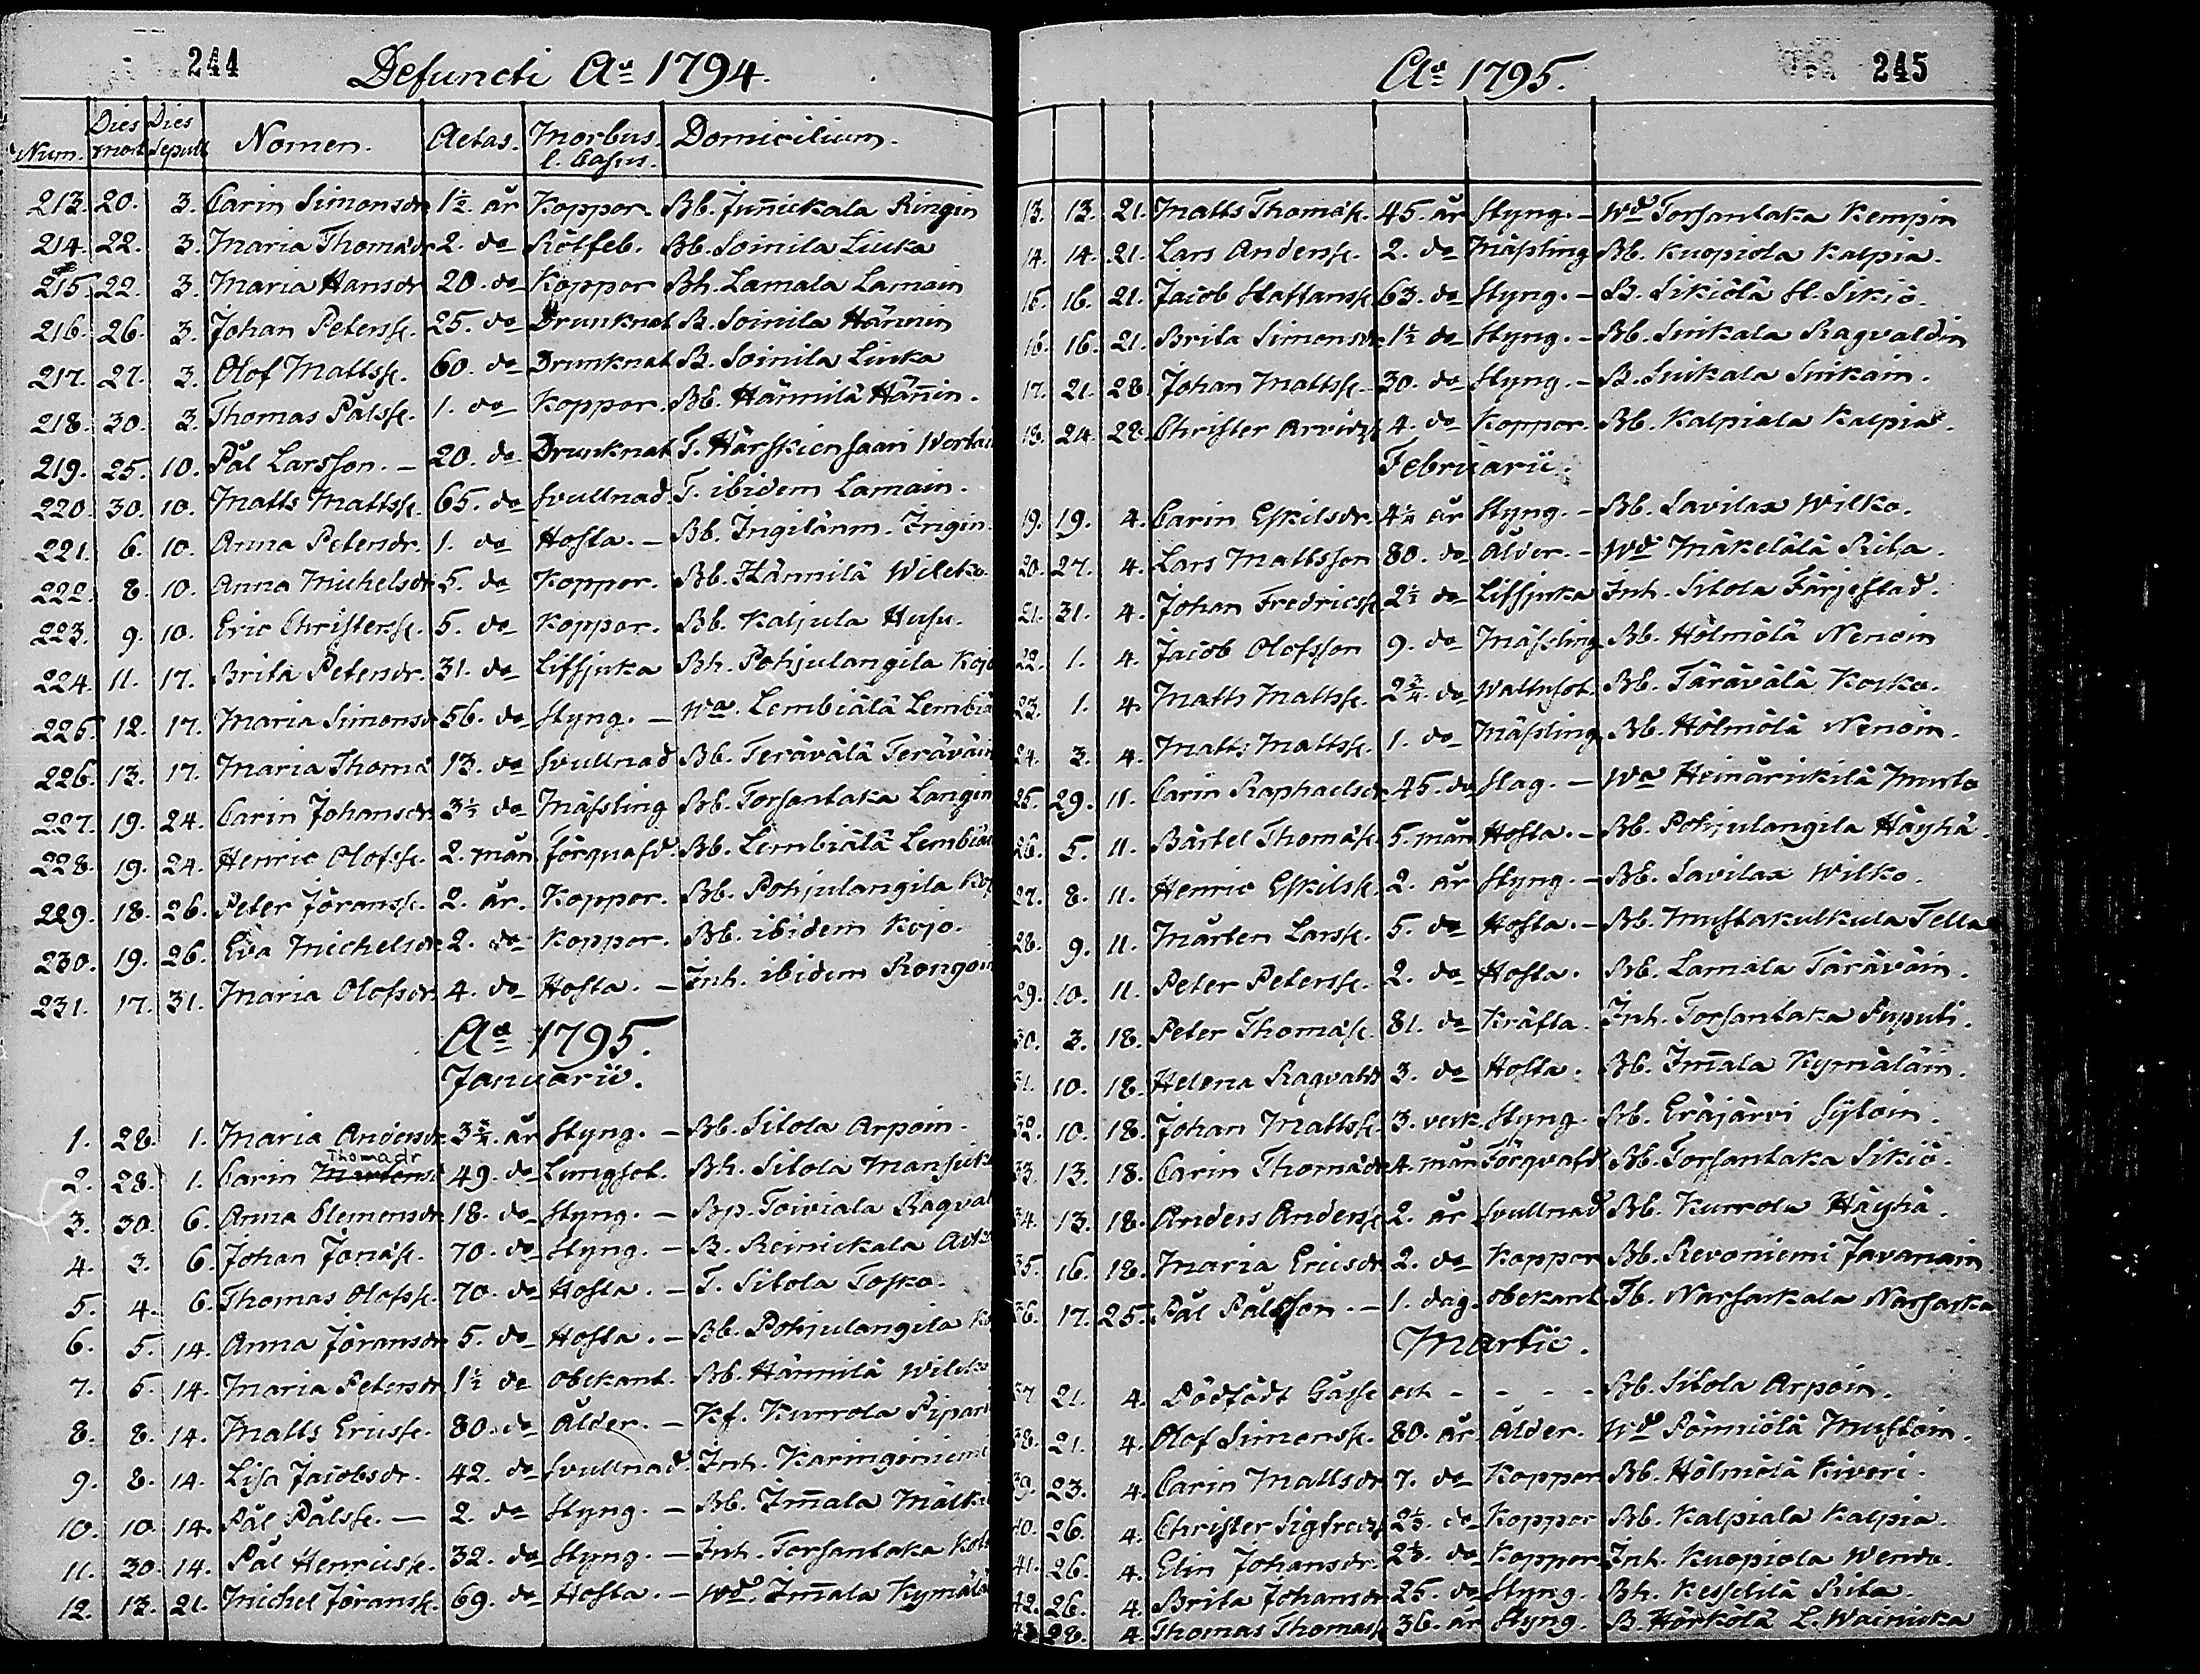 244
Defuncti Ao 1794.
Num. Dies mort. Dies sepult. Nomen. Aetas. Morbus l. Casus. Domicilium.
213. 20. 3. Carin Simonsdr 1½ år Koppor. Bb. Junickala Ringin
214. 22. 3. Maria Thomædr 2. do Rötfeb. Bb. Soinila Liuka
215. 22. 3. Maria Hansdr 20. do Koppor Bh. Lamala Lamain
216. 26. 3. Johan Peterss. 25. do Drunknat B. Soinila Hännin
217. 27. 3. Olof Mattss. 60. do Drunknat B. Soinila Liuka
218. 30. 3. Thomas Pålss. 1. do Koppor. Bb. Hännilä Hänin.
219. 25. 10. Pål Larsson. – 20. do Drunknat T. Härskiensaari
220. 30. 10. Matts Mattss. 65. do Svullnad. T. ibidem Lamain.
221. 6. 10. Anna Petersdr. 1. do Hosta. – Bb. Ingilänm. Ingin.
222. 8. 10. Anna Michelsdr 5. do Koppor. Bb. Hännilä Wilcko.
223. 9. 10. Eric Christerss. 5. do Koppor. Bb. Kaljula Husu.
224. 11. 17. Brita Petersdr. 31. do Lifsjuka Bh. Pohjulangila Kojo
225. 12. 17. Maria Simonsd 56. do Styng. – Wa. Lembiälä Lembiä
226. 13. 17. Maria Thomæ 13. do Svullnad Bb. Terävälä Teräväin
227. 19. 24. Carin Johansdr 3½ do Mässling Bb. Torsantaka Langin
228. 19. 24. Henric Olofss. 2. mån. Förqvafd. Bb. Lembiälä Lembiäi
229. 18. 26. Peter Jöranss. 2. år. Koppor. Bb. Pohjulangila Koj
230. 19. 26. Eva Michelsdr 2. do Koppor. Bb. ibidem Kojo.
231. 17. 31. Maria Olofsdr 4. do Hosta. – Inh. ibidem Rongoin
Ao 1795.
Januarii.
1. 28. 1. Maria Andersdr 3¾ år Styng. – Bb. Sitola Arpoin.
Thomadr
2. 28. 1. Carin Mårtens 49. do Lungsot. Bh. Sitola Mansick
3. 30. 6. Anna Clemensdr 18. do Styng. – Bp. Toiviala Ragval
4. 3. 6. Johan Jonæss. 70. do Styng. – B. Reinickala
5. 4. 6. Thomas Olofss. 70. do Hosta. – T. Sitola Tosko.
6. 5. 14. Anna Jöransdr 5. do Hosta. – Bb. Pohjulangila Ko
7. 5. 14. Maria Petersdr 1½ do obekant. Bb. Hännilä Wilcko
8. 8. 14. Matts Ericss. 80. do Ålder. – Kf. Kurrola Pipari
9. 8. 14. Lisa Jacobsdr. 42. do Svullnad. Inh. Karinginiemi
10. 10. 14. Pål Pålss. – 2. do Styng. – Bb. Imala Mälk
11. 30. 14. Pål Henricss. 32. do Styng. – Inh. Torsantaka
12. 13. 21. Michel Jöranss. 69. do Hosta. – Wd. Imala Kymälä
Ao 1795. 245
13. 13. 21. Matts Thomæss. 45. år Styng. – Wd Torsantaka Kempin
14. 14. 21. Lars Anderss. 2. do Mässling Bb. Kuopiola Kalpia.
15. 16. 21. Jacob Staffanss. 63. do Styng. – B. Sikiölä St. Sikiö.
16. 16. 21. Brita Simonsdr 1½ do Styng. – Bb. Sinkala Ragvaldin
17. 21. 28. Johan Mattss. 30. do Styng. – B. Sinkala Sinkain.
18. 24. 28. Christer Arvidss 4. do Koppor. Bb. Kalpiala Kalpia.
Februarii.
19. 19. 4. Carin Eskilsdr. 4¼ år Styng. – Bb. Savilax Wilko.
20. 27. 4. Lars Mattsson 80. do Ålder. – Wd Mäkelälä Rita.
21. 31. 4. Johan Fredricss 2½ do Lifsjuka Inh. Sitola Färjestad.
22. 1. 4. Jacob Olofsson 9. do Mässling Bb. Hölmölä Nenoin
23. 1. 4. Matts Mattss. 2¾ do Wattusot. Bb. Tärävälä Kosko.
24. 3. 4. Matts Mattss. 1. do Mässling Bb. Hölmölä Nenoin.
25. 29. 11. Carin Raphaelsdr 45. do Slag. – Wa Heinärickilä Musto
26. 5. 11. Bärtel Thomæss. 5. mån Hosta. – Bb. Pohjulangila Häyhä.
27. 8. 11. Henric Eskilss. 2. år Styng. – Bb. Savilax Wilko.
28. 9. 11. Mårten Larss. 5. do Hosta. – Bb. Mustakulkula Tella
29. 10. 11. Peter Peterss. 2. do Hosta. Bb. Lamala Täräväin.
30. 3. 18. Peter Thomæss. 81. do Kräfta. Inh. Torsantaka Puputi.
31. 10. 18. Helena Ragvalds 3. do Hosta. Bb. Imala Kymäläin.
32. 10. 18. Johan Mattss. 3. veck. Styng. Bb. Eräjärvi Sÿtoin.
33. 13. 18. Carin Thomædr 4. mån Förqvafd Bb. Torsantaka Sikiö.
34. 13. 18. Anders Anderss 2. år Svullnad Bb. Kurrola Häyhä.
35. 16. 18. Maria Ericsdr 2. do Koppor Bb. Revoniemi Javanain
36. 17. 25. Pål Pålsson. – 1. dag. obekant Tb. Narsackala Narsacka
Martii.
37. 21. 4. Dödfödt Gåsse och – – – – Bb. Sitola Arpoin.
38. 21. 4. Olof Simonss. 80. år. Ålder. Wd Pönniölä Mustoin.
39. 23. 4. Carin Mattsdr 7. do Koppor Bb. Hölmölä Kiveri.
40. 26. 4. Christer Sigfredss 2½. do Koppor Bb. Kalpiala Kalpia.
41. 26. 4. Elin Johansdr. 2½. do Koppor Inh. Kuopiola Wento.
42. 26. 4. Brita Johansdr 25. do Styng. Bh. Kesselilä Rita.
43. 28. 4. Thomas Thomass 36. år Styng. B. Hörkölä L. Wainicka